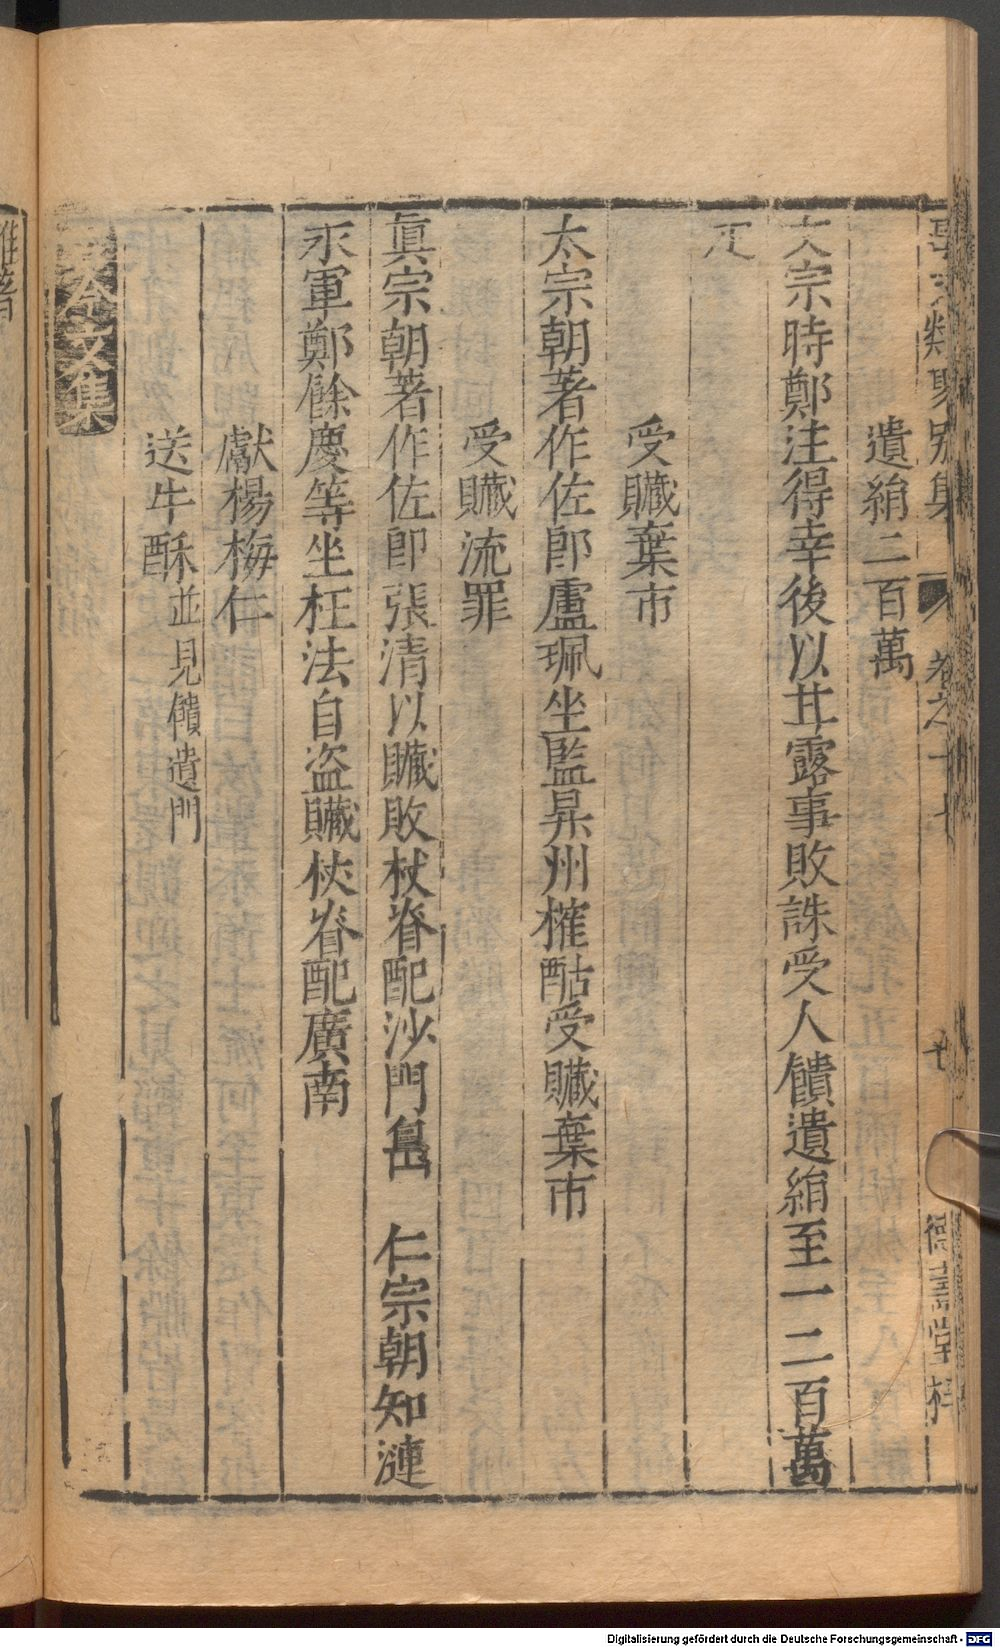 事文類聚別集 卷之 德壽堂梓
遺絹二百萬
文宗時鄭注得幸後以甘露事敗誅受人饋遺絹至一二百萬
疋
受贓棄市
太宗朝著作佐郎盧珮坐監昇州榷酤受贓棄市
受贓流罪
眞宗朝著作佐郎張清以贓敗杖脊配沙門島 仁宗朝知漣
水軍鄭餘慶等坐枉法自盜贓杖脊配廣南
獻楊梅仁
送牛酥並見饋遺門
古今文集
雜著
Digitalisierung gefördert durch die Deutsche Forschungsgemeinschaft - DFG